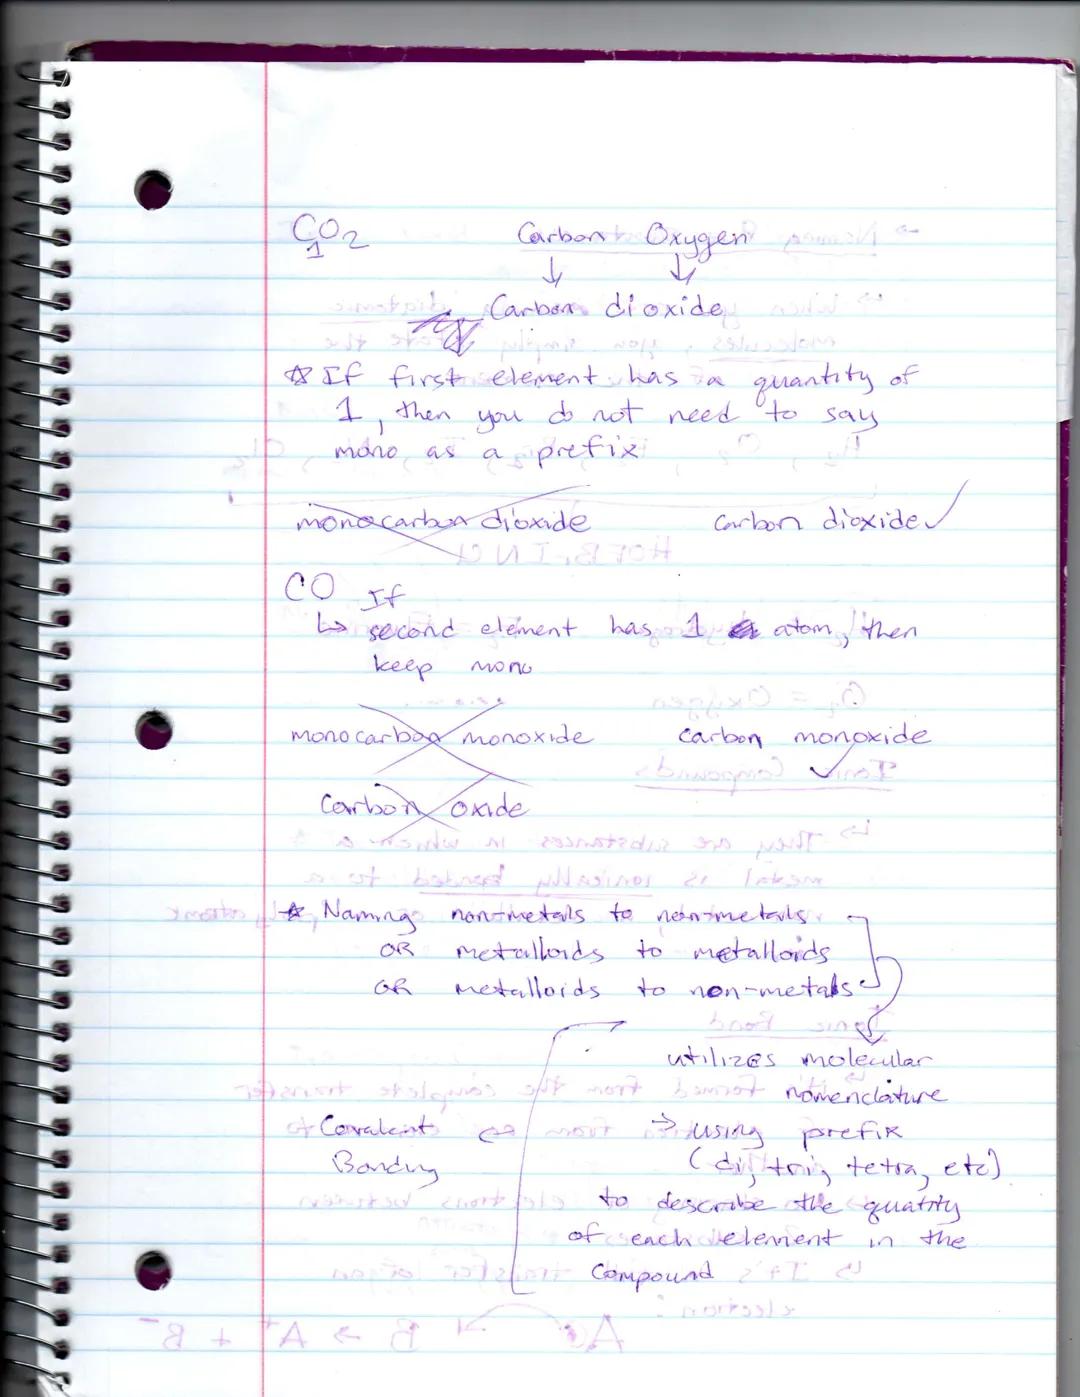 CO2 Carbon Oxygen
1
↓ ↓
Carbon dioxide
☆ If first element has a quantity of
1, then you do not need to say
mono as a prefix
monocarbon dioxide carbon dioxide ✓
CO If
↳ second element has 1 atom, then
keep mono
monocarbon monoxide carbon monoxide ✓
Carbon oxide
☆ Naming non-metals to non-metals
OR metalloids to metalloids
OR metalloids to non-metals
utilizes molecular
nomenclature
Covalent → using prefix
Bonding (di, tri, tetra, etc)
to describe the quatity
of each element in the
compound